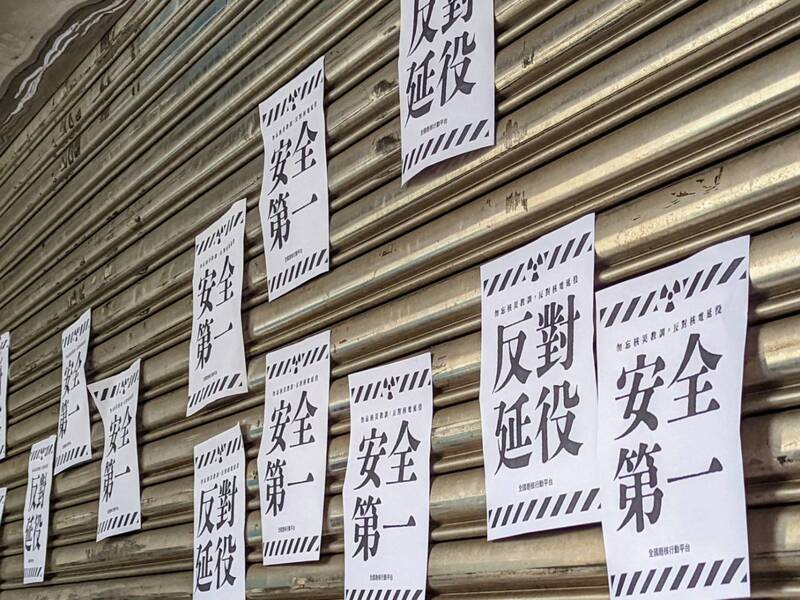 反對
延役
全國廢核行動平台
勿忘核災教訓，反對核電延役
安全
第一
勿忘核災教訓，反對核電延役
安全
第一
勿忘核災教訓，反對核電延役
反對
延役
全國廢核行動平台
勿忘核災教訓，反對核電延役
安全
第一
全國廢核行動平台
安全
第一
安全
第一
勿忘核災教訓，反對核電延役
安全
第一
全國廢核行動平台
勿忘核災教訓，反對核電延役
安全
第一
全國廢核行動平台
反對
延役
反對
延役